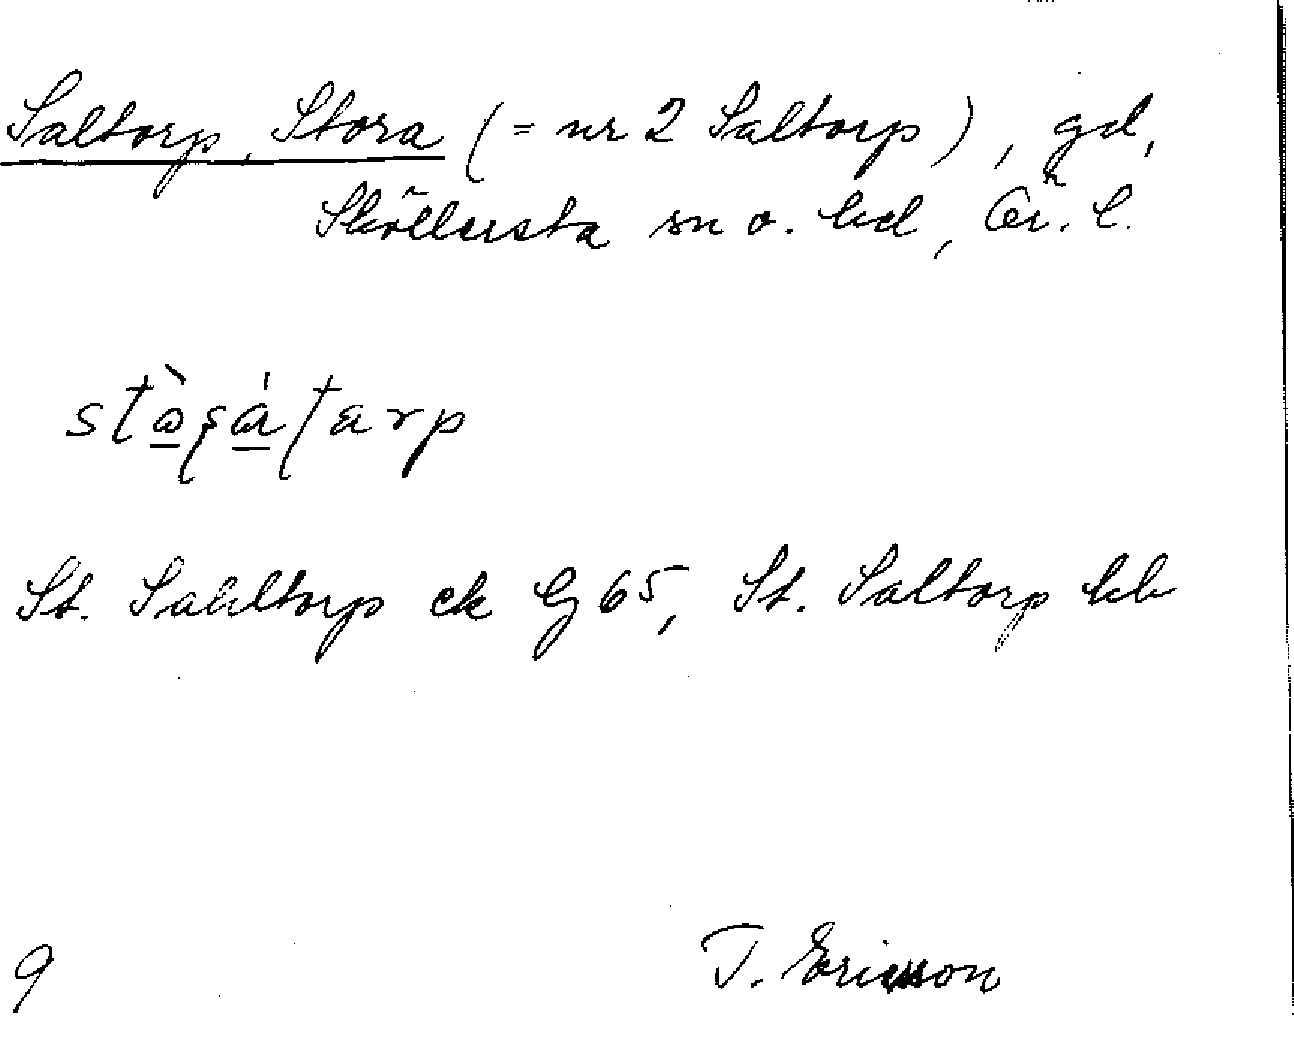 Saltorp, Stora (= nr 2 Saltorp), gd,
Sköllersta sn o. hd, Ör. l.
St. Sahltorp ek G 65, St. Saltorp kb
9
T. Ericsson